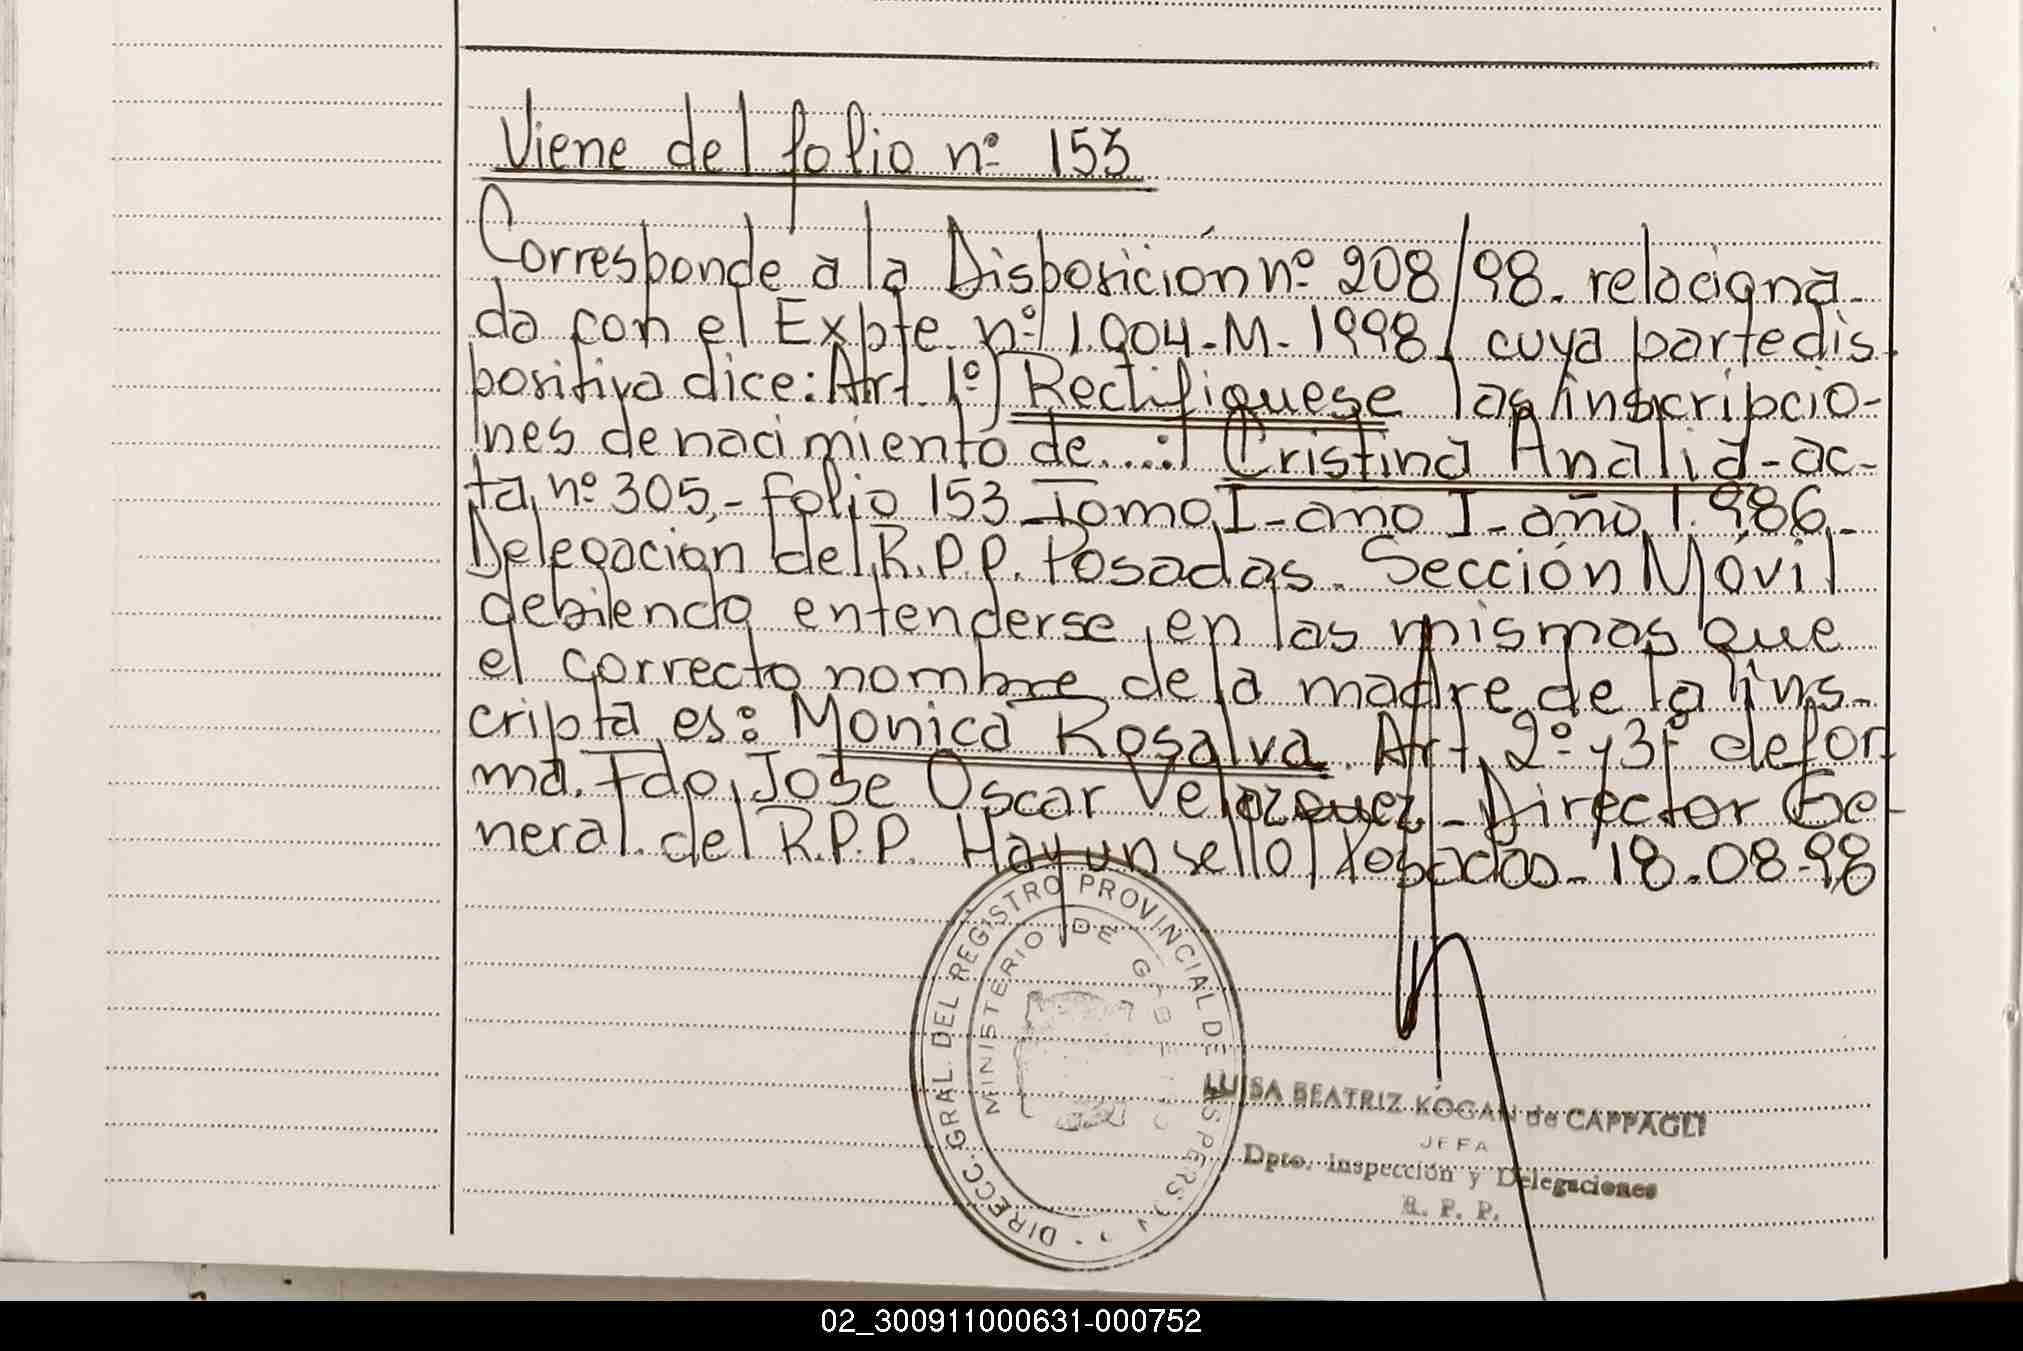 Viene del folio nº 153
Corresponde a la Disposición nº 208/98. relaciona-
da con el Expte. nº 1.004-M-1998/ cuya parte dis-
positiva dice: Art. 1º) Rectifiquese las inscripcio-
nes de nacimiento de...: Cristina Analia - ac-
ta nº 305,- folio 153 Tomo I - año I - año 1.986.-
Delegacion del R.P.P. Posadas. Sección Móvil
debiendo entenderse en las mismas que
el correcto nombre de la madre de la ins-
cripta es: Monica Rosalva. Art. 2º y 3º de for-
ma. Fdo, Jose Oscar Velazquez - Director Ge-
neral del R.P.P. Hay un sello/ Posadas - 18.08.98
DIRECC. GRAL. DEL REGISTRO PROVINCIAL DE LAS PERSON
MINISTERIO DE GOB
LUISA BEATRIZ KOGAN de CAPPAGLI
JEFA
Dpto. Inspección y Delegaciones
R. P. P.
02_300911000631-000752